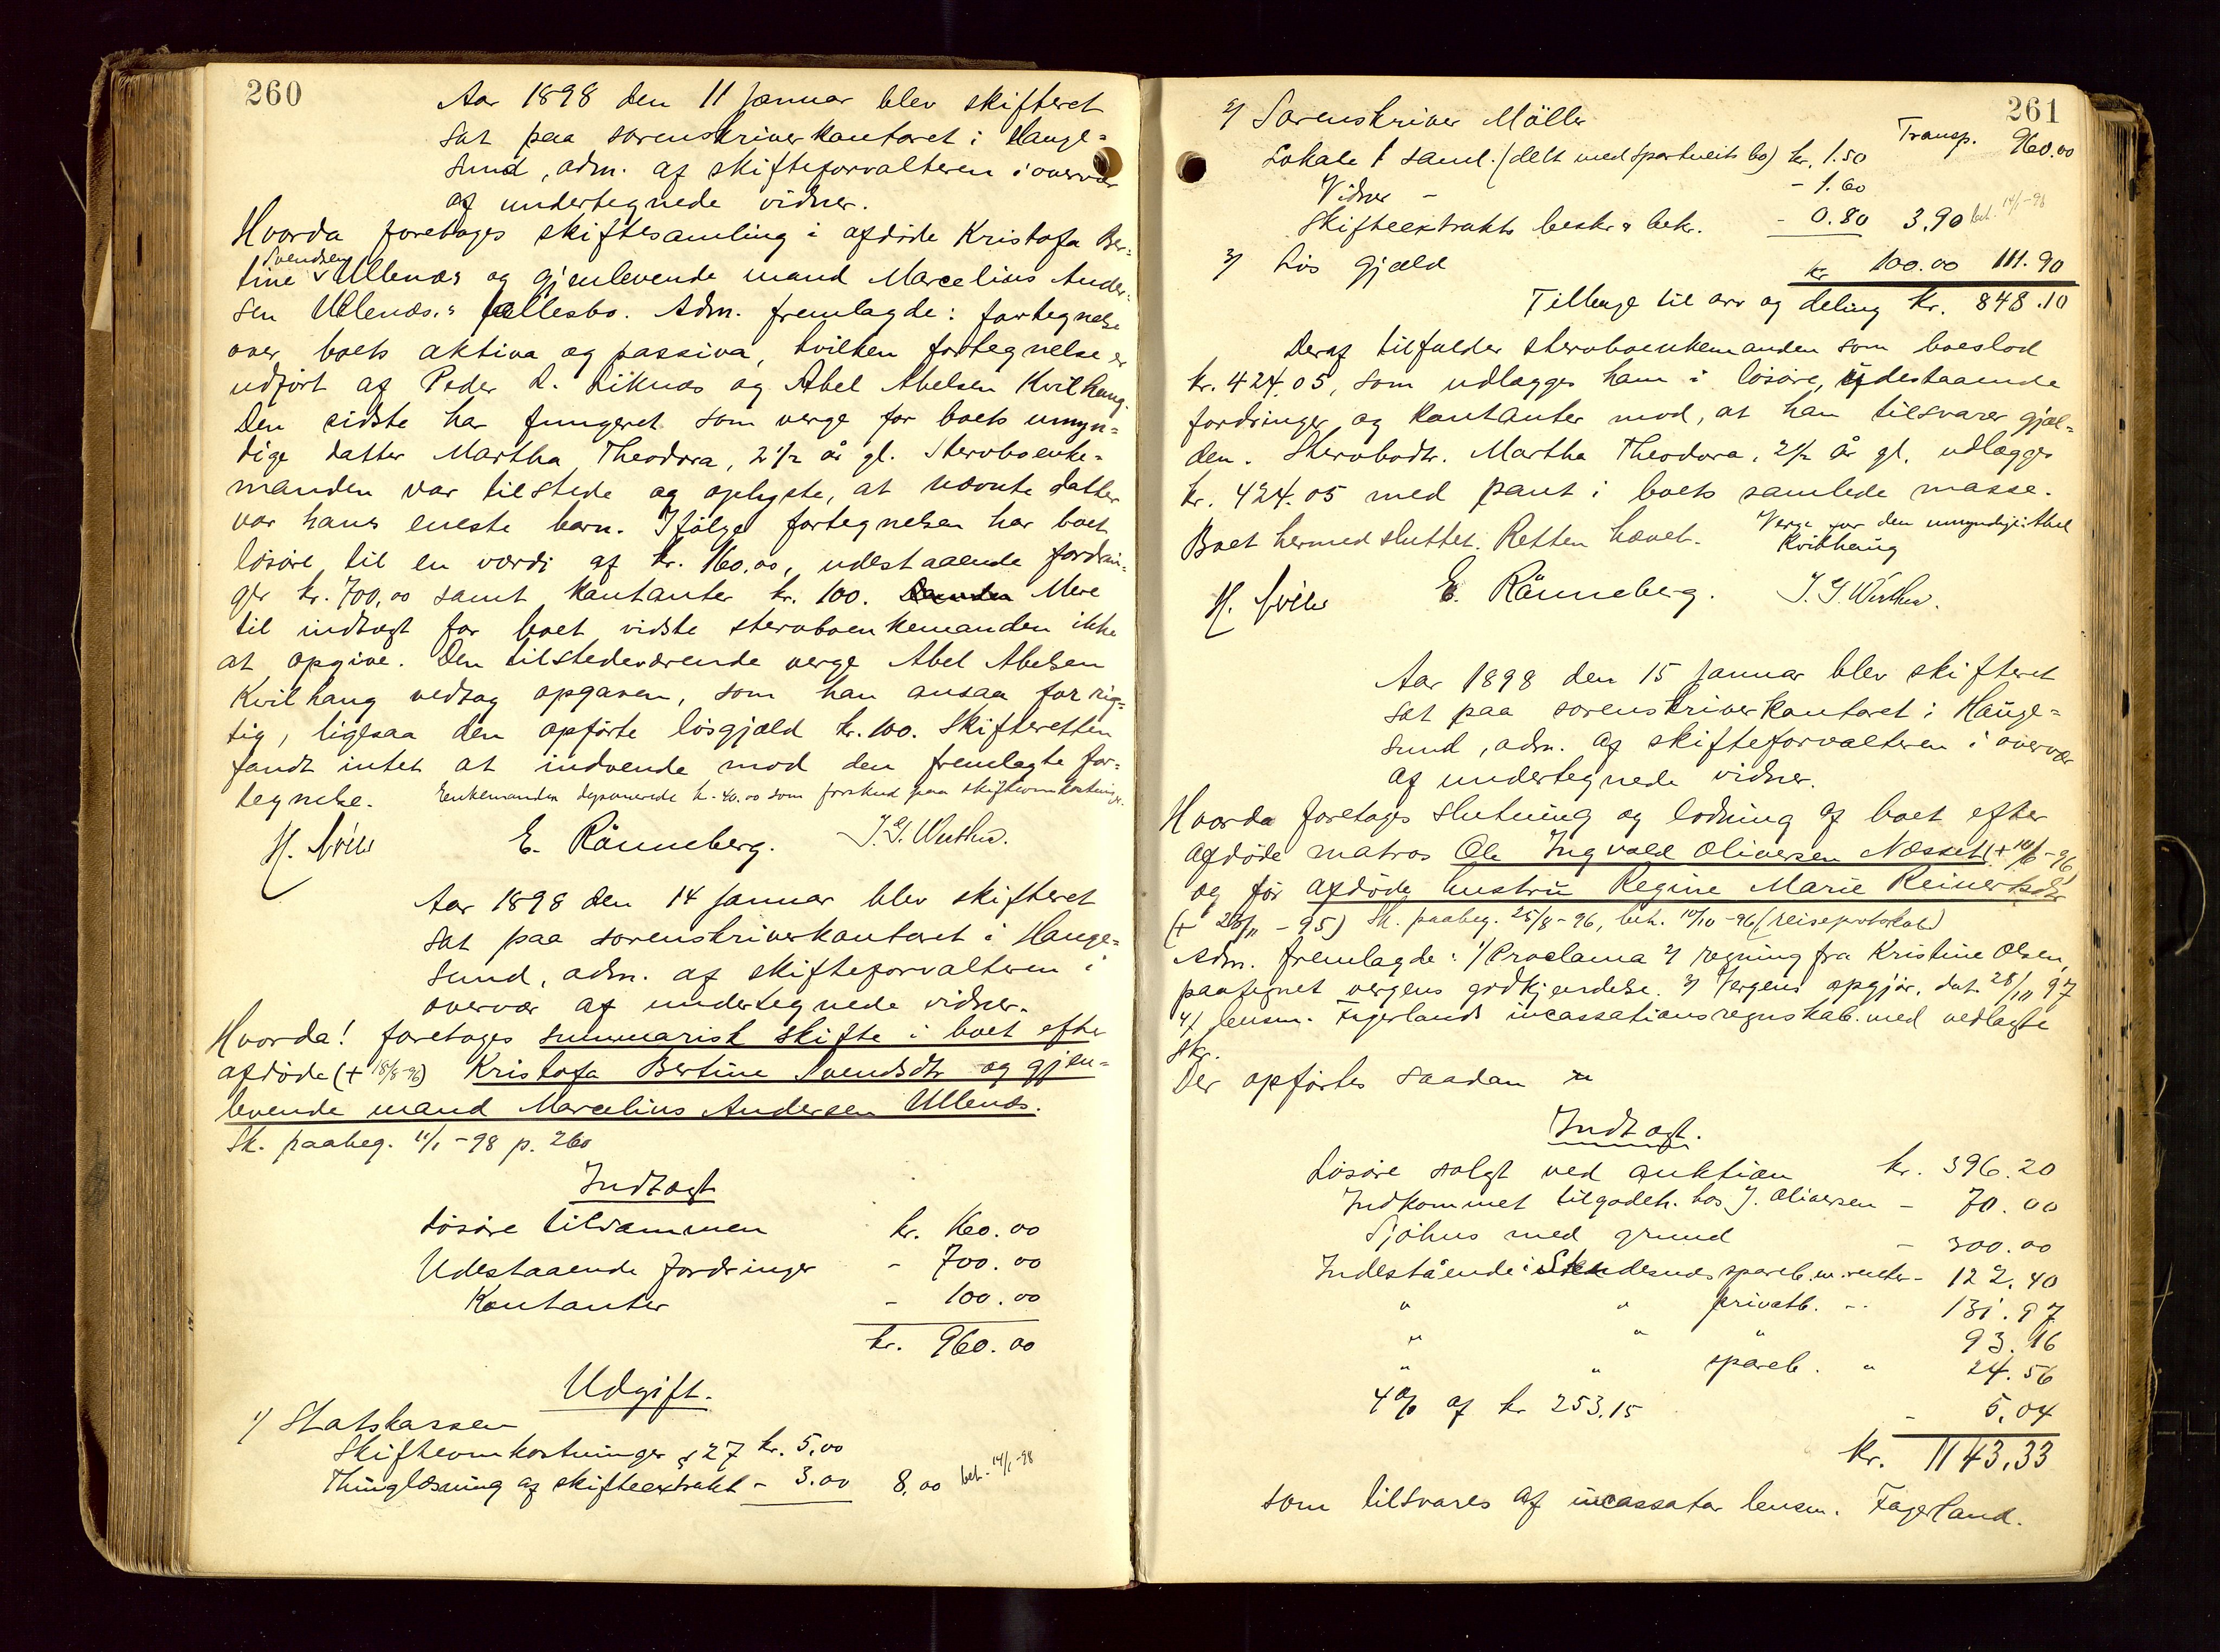 260
Aar 1898 den 11 Januar blev skifteret
sat paa sorenskriverkontoret i Hauge=
sund, adm. af skifteforvalteren i overvær
af undertegnede vidner.
Hvorda foretoges skiftesamling i afdøde Kristofa Ber=
Svendsen
tine Ullenæs og gjenlevende mand Marcelius Ander=
sen Ullenæs.s fællesbo. Adm. fremlagde: fortegnelse
over boets aktiva og passiva, hvilken fortegnelse er
udført af Peder L. Liknæs og Abel Abelsen Kvilhaug.
Den sidste har fungeret som verge for boets umyn=
dige datter Martha Theodora, 2 1/2 år gl. Stervboenke=
manden var tilstede og oplyste, at nævnte datter
var hans eneste barn. Ifølge fortegnelsen har boet
løsøre til en værdi af kr. 160.00, udestaaende fordrin=
ger kr. 700,00 samt kontanter kr. 100. Mere
til indtægt for boet vidste stervboenkemanden ikke
at opgive. Den tilstedeværende verge Abel Abelsen
Kvilhaug vedtog opgaven, som han ansaa for rig=
tig, ligesaa den opførte løsgjæld kr. 100. Skifteretten
fandt intet at indvende mod den fremlagte for=
tegnelse. Enkemanden deponerede kr. 40.00 som forskud paa skifteomkostninger.
H. E. Rønneberg. J. G. Wers
Aar 1898 den 14 Januar blev skifteret
sat paa sorenskriverkontoret i Hauge=
sund, adm. af skifteforvalteren i
overvær af undertegnede vidner.
Hvorda! foretoges summarisk skifte i boet efter
afdøde (+ 18/8-96) Kristofa Bertine Svendsdtr og gjen=
levende mand Marcelius Andersen Ullenæs.
Sk. paabeg. 11/1-98 p. 260
Indtægt
Løsøre tilsammen kr. 160.00
Udestaaende fordringer - 700.00
Kontanter - 100.00
kr. 960.00
Udgift.
1/ Statskassen
Skifteomkostninger § 27 kr. 5.00
Thinglæsning af skifteextrakt - 3.00 8.00 bet. 14/1-98
261
2/ Sorenskriver Møller Transp. 960.00
Lokale 1 saml. (delt med Sportveits bo) kr. 1.50
Vidner - - 1.60
Skifteextrakts beskr & bekr. - 0.80 3.90 bet. 14/1-98
3/ Løs gjæld kr 100.00 111.90
Tilbage til arv og deling kr. 848.10
Deraf tilfalder stervboenkemanden som boeslod
kr. 424.05, som udlægges ham i løsøre, udestaaende
fordringer og kontanter mod, at han tilsvarer gjæl=
den. Stervbodtr. Martha Theodora, 2 1/2 år gl. udlægges
kr. 424.05 med pant i boets samlede masse.
Boet hermed sluttet. Retten hævet. Verge for den umyndige: Abel
Kvilhaug
H. E. Rønneberg. J. G. Wers
Aar 1898 den 15 Januar blev skifteret
sat paa sorenskriverkontoret i Hauge=
sund, adm. af skifteforvalteren i overvær
af undertegnede vidner.
Hvorda foretoges slutning og lodning af boet efter
afdøde matros Ole Ingvald Oliversen Næsset (+ 10/6-96)
og før afdøde hustru Regine Marie Reinertsdtr
(+ 28/11-95) Sk. paabeg. 25/8-96, beh. 10/10-96 (reiseprotokol)
Adm. fremlagde: 1/ Proclama 2/ regning fra Kristine Olsen,
paategnet vergens godkjendelse. 3/ Vergens opgjør, dat. 28/11 97
4/ lensm. Fagerlands incassationsregnskab med vedlagte
skr.
Der opførtes saadan
Indtægt.
Løsøre solgt ved auktion kr. 396.20
Indkommet tilgodeh. hos J. Oliversen - 70.00
Sjøhus med grund - 300.00
Indestående i Skudesnæs spareb. m. renter - 122.40
" " privatb. - 131.97
" " " 93.16
" " spareb. " 24.56
4% af kr 253.15 - 5.04
Kr. 1143.33
som tilsvares af incassator lensm. Fagerland.